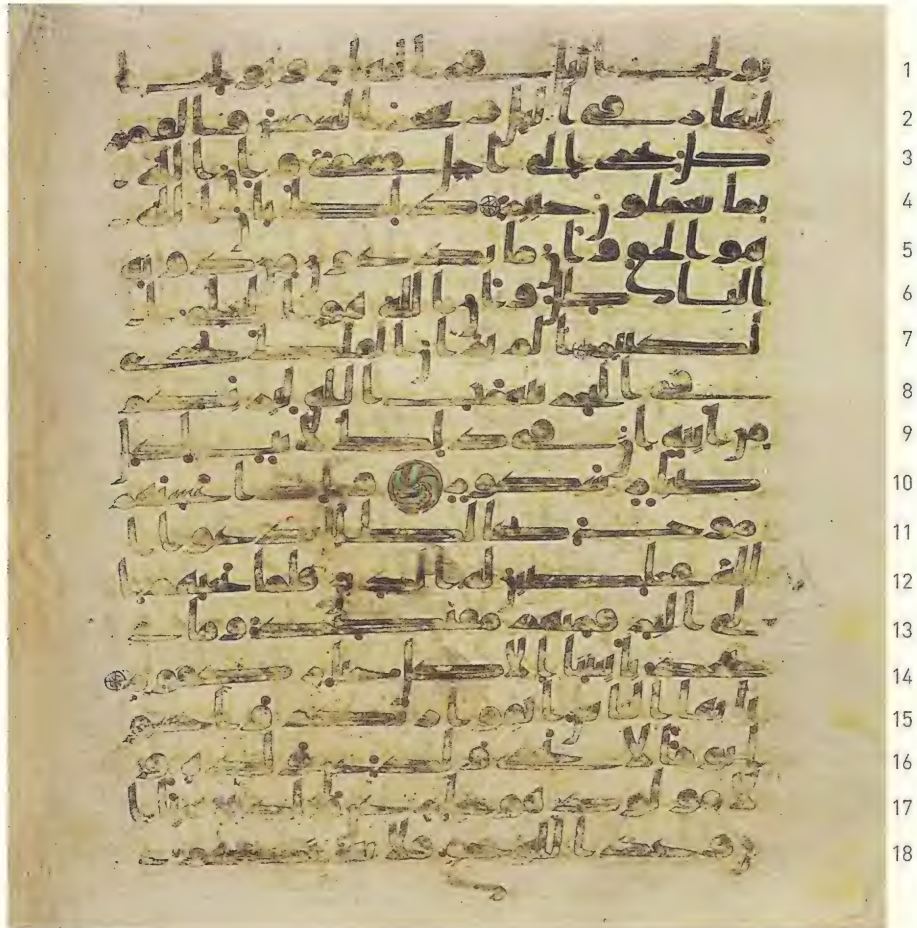 يولج اليل في النهار ويولج ا 1
لنهار في اليل وسخر الشمس والقمر 2
كل يجري الى اجل مسمى وان الله 3
بما تعملون خبير ذلك بان الله 4
هو الحق وان ما يدعون من دونه 5
البطل وان الله هو العلي 6
الكبير الم تر ان الفلك تجري 7
في البحر بنعمت الله ليريكم 8
من ايته ان في ذلك لايت لكل 9
صبار شكور واذا غشيهم 10
موج كالظلل دعوا ا 11
لله مخلصين له الدين فلما نجيهم ا 12
لى البر فمنهم مقتصد وما 13
يجحد بايتنا الا كل ختار كفور 14
يايها الناس اتقوا ربكم واخشوا 15
يوما لا يجزي والد عن ولده و 16
لا مولود هو جاز عن والده شيا ان 17
وعد الله حق فلا تغرنكم 18